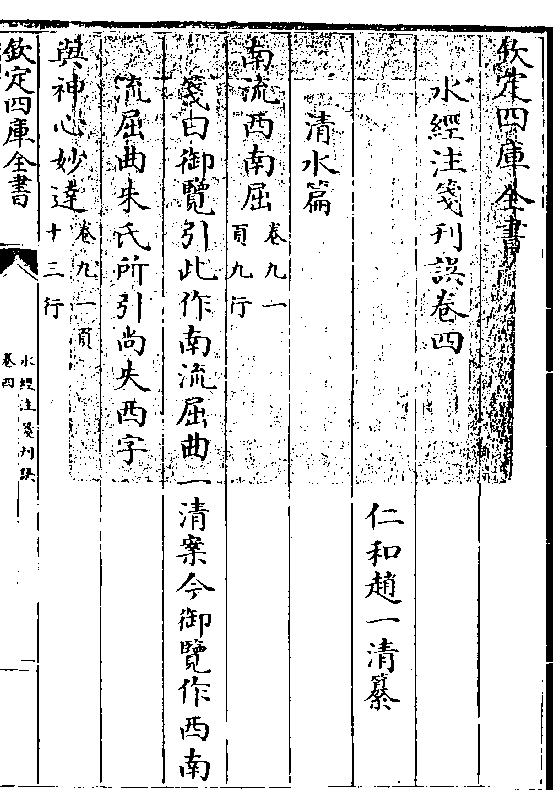 欽定四庫全書
水經注箋刊誤卷四
仁和趙一清纂
清水篇
南流西南屈
卷九一
頁九行
箋曰御覽引此作南流屈曲一清案今御覽作西南
流屈曲朱氏所引尚失西字
與神心妙達
卷九一頁
十三行
欽定四庫全書
水經注箋刊誤
卷四
一